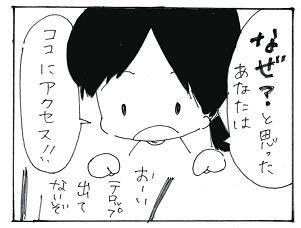 なぜ?と思った
あなたは
ココにアクセス!!
おーい
テロップ
出て
ないぞ